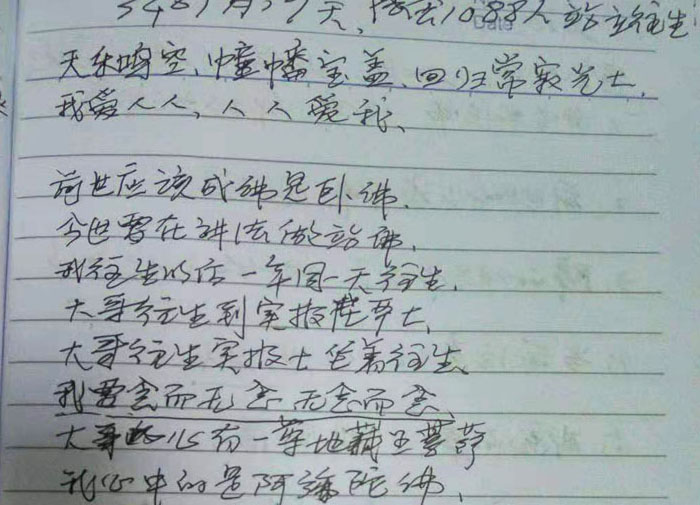 天, 1088人站立往生
天乐鸣空、幢幡宝盖、回归常寂光土.
我爱人人、人人爱我、
前世应该成佛是卧佛.
今世要在讲法做站佛.
我往生以后一年同一天往生.
大哥往生到实报庄严土、
大哥往生实报土坐着往生、
我要念而无念、无念而念、
大哥心有一尊地藏王菩萨
我心中的是阿弥陀佛、